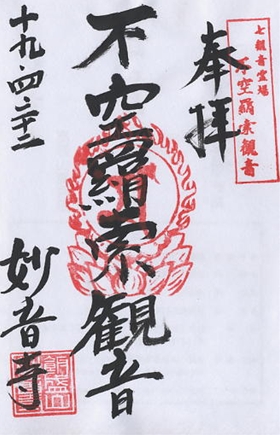 七観音霊場
不空羂索観音
奉拝
不空羂索観音
十九・四・二十二
妙音寺